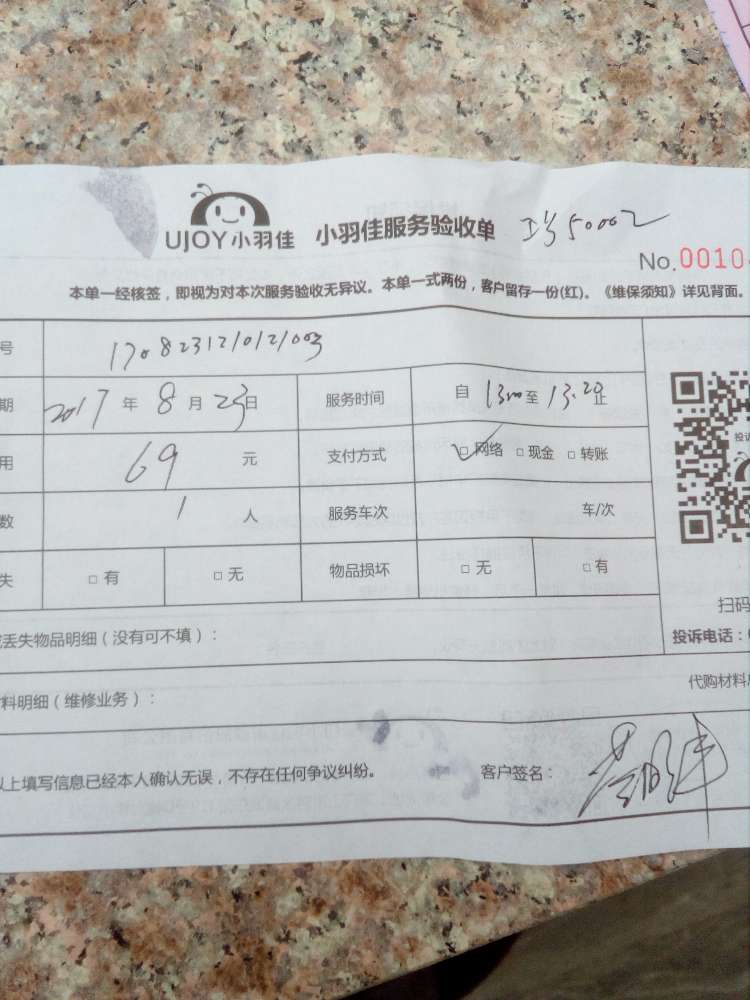 UJOY小羽佳 小羽佳服务验收单 50002
No.0010
本单一经核签，即视为对本次服务验收无异议。本单一式两份，客户留存一份(红)。《维保须知》详见背面。
号 1708231210121003
期 2017年8月23日 服务时间 自13:00至13:20止
用 69元 支付方式 ☑网络 □现金 □转账
数 1人 服务车次 车/次
失 □有 □无 物品损坏 □无 □有
扫码
丢失物品明细（没有可不填）： 投诉电话：
料明细（维修业务）： 代购材料
以上填写信息已经本人确认无误，不存在任何争议纠纷。 客户签名：